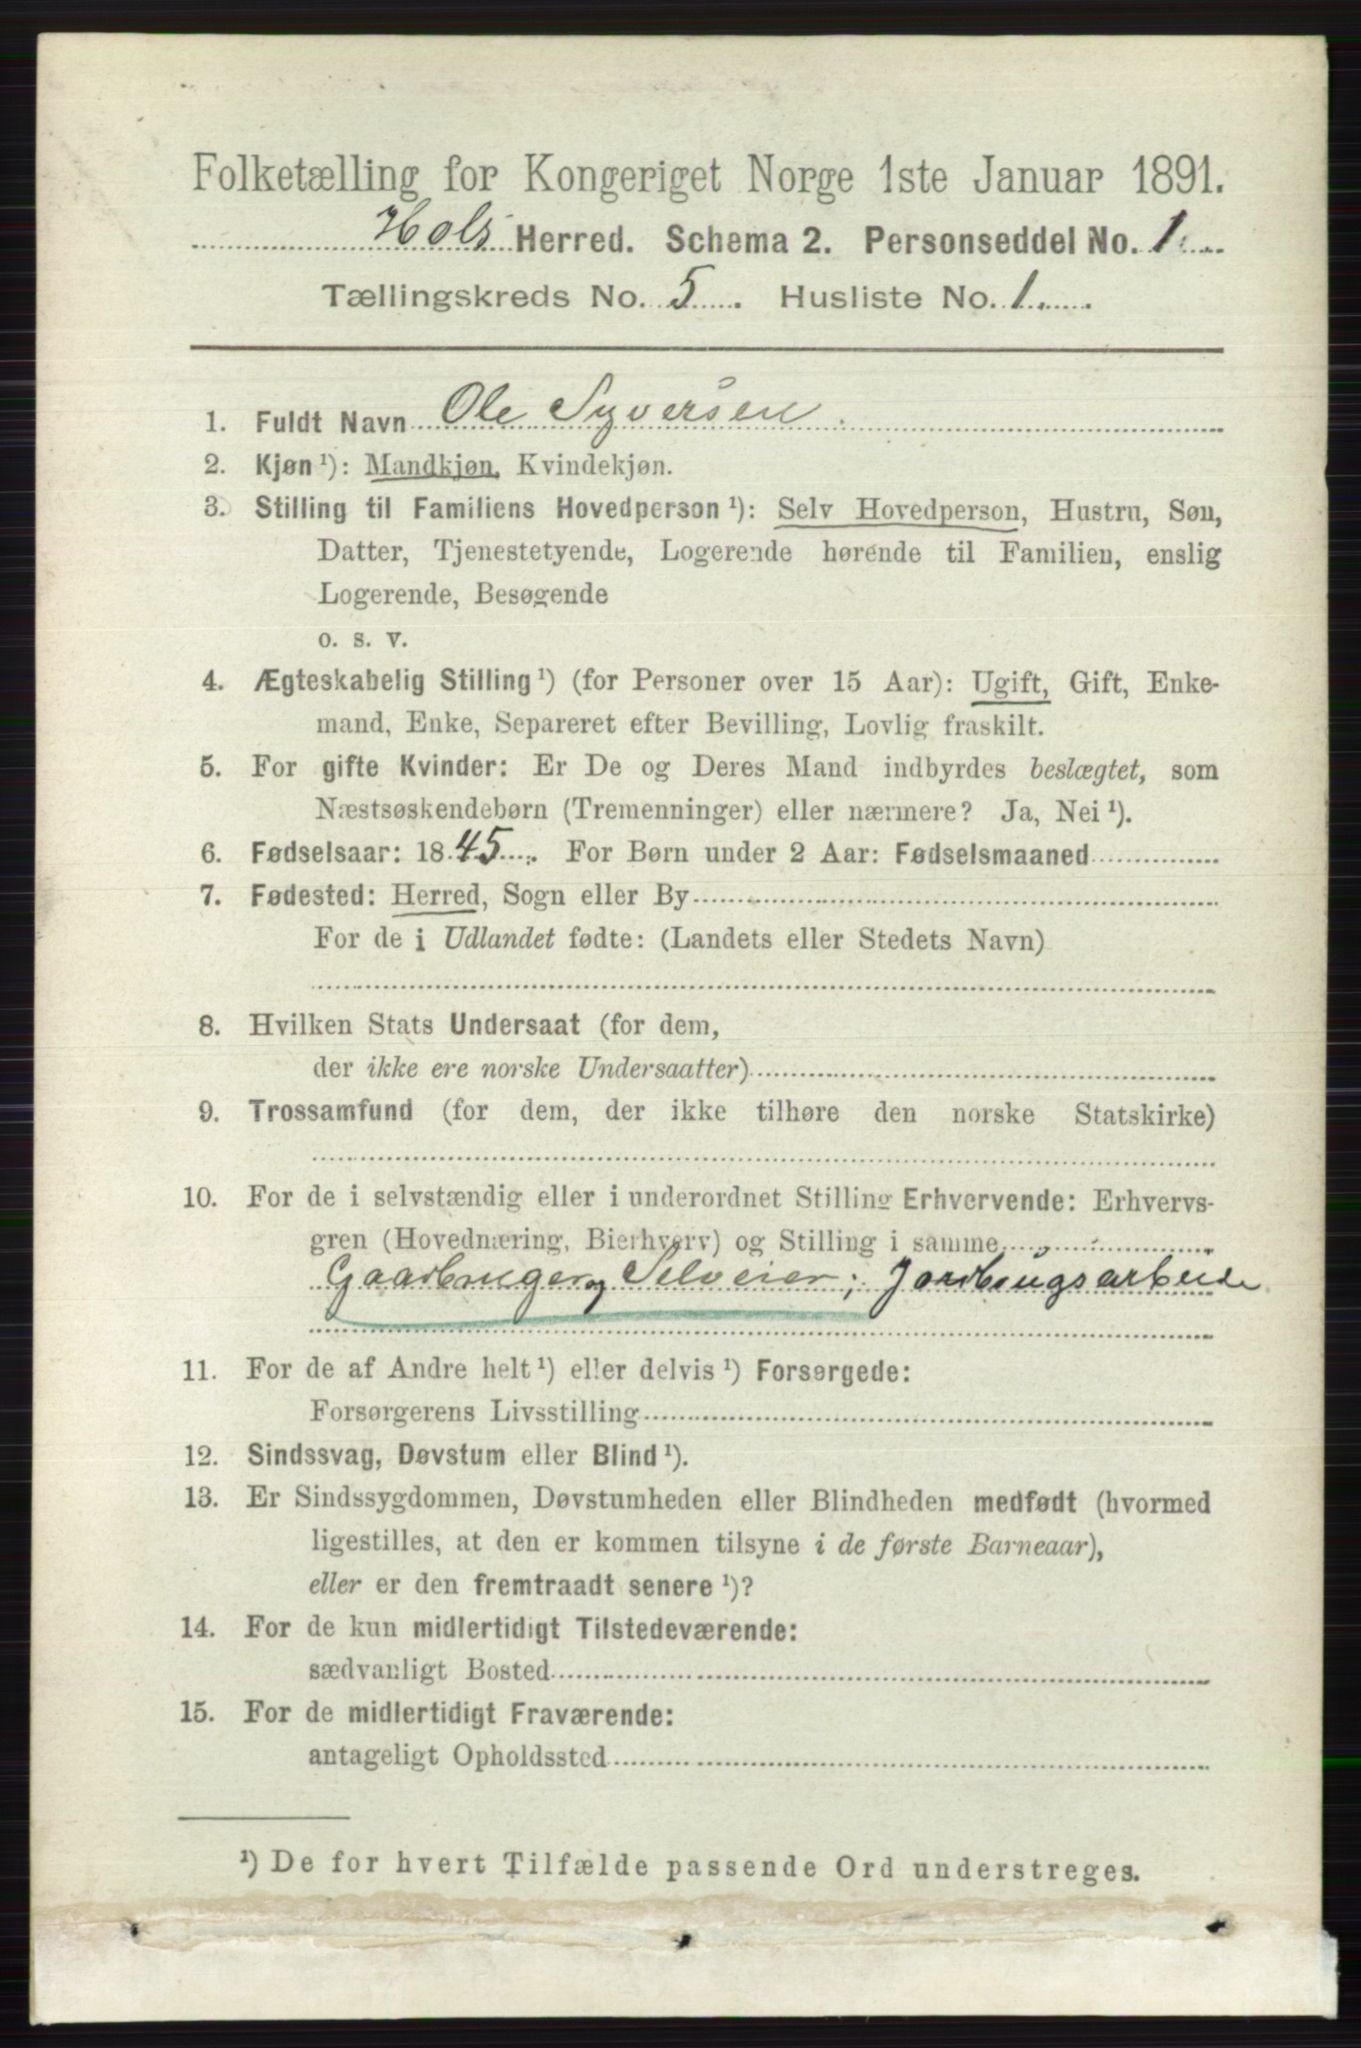 Folketælling for Kongeriget Norge 1ste Januar 1891.
Hols Herred. Schema 2. Personseddel No. 1.
Tællingskreds No. 5. Husliste No. 1.
1. Fuldt Navn Ole Syversen.
2. Kjøn ¹): Mandkjøn, Kvindekjøn.
3. Stilling til Familiens Hovedperson ¹): Selv Hovedperson, Hustru, Søn,
Datter, Tjenestetyende, Logerende hørende til Familien, enslig
Logerende, Besøgende
o. s. v.
4. Ægteskabelig Stilling ¹) (for Personer over 15 Aar): Ugift, Gift, Enke-
mand, Enke, Separeret efter Bevilling, Lovlig fraskilt.
5. For gifte Kvinder: Er De og Deres Mand indbyrdes beslægtet, som
Næstsøskendebørn (Tremenninger) eller nærmere? Ja, Nei ¹).
6. Fødselsaar: 1845. For Børn under 2 Aar: Fødselsmaaned
7. Fødested: Herred, Sogn eller By
For de i Udlandet fødte: (Landets eller Stedets Navn)
8. Hvilken Stats Undersaat (for dem,
der ikke ere norske Undersaatter)
9. Trossamfund (for dem, der ikke tilhøre den norske Statskirke)
10. For de i selvstændig eller i underordnet Stilling Erhvervende: Erhvervs-
gren (Hovednæring, Bierhverv) og Stilling i samme
Gaardbruger og Selveier; Jordbrugsarbeide
11. For de af Andre helt ¹) eller delvis ¹) Forsørgede:
Forsørgerens Livsstilling
12. Sindssvag, Døvstum eller Blind ¹).
13. Er Sindssygdommen, Døvstumheden eller Blindheden medfødt (hvormed
ligestilles, at den er kommen tilsyne i de første Barneaar),
eller er den fremtraadt senere ¹)?
14. For de kun midlertidigt Tilstedeværende:
sædvanligt Bosted
15. For de midlertidigt Fraværende:
antageligt Opholdssted
¹) De for hvert Tilfælde passende Ord understreges.